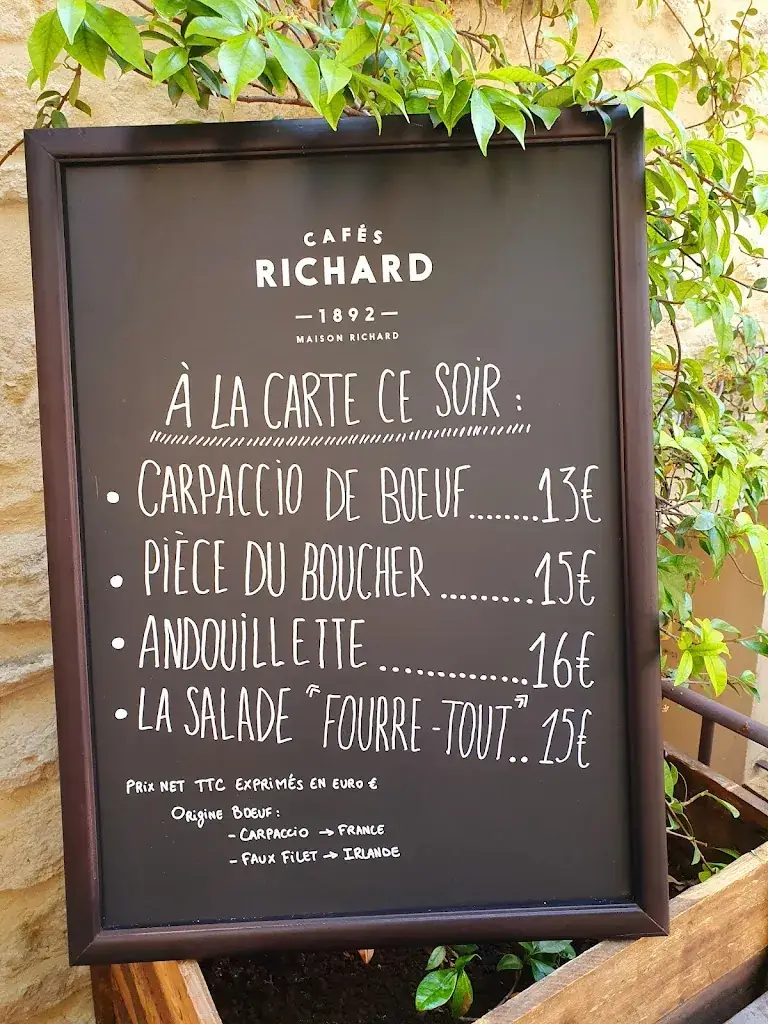 CAFÉS
RICHARD
—1892—
MAISON RICHARD
À LA CARTE CE SOIR :
• CARPACCIO DE BOEUF........13€
• PIÈCE DU BOUCHER .........15€
• ANDOUILLETTE ..............16€
• LA SALADE "FOURRE-TOUT".. 15€
PRIX NET TTC EXPRIMÉS EN EURO €
ORIGINE BOEUF:
- CARPACCIO → FRANCE
- FAUX FILET → IRLANDE